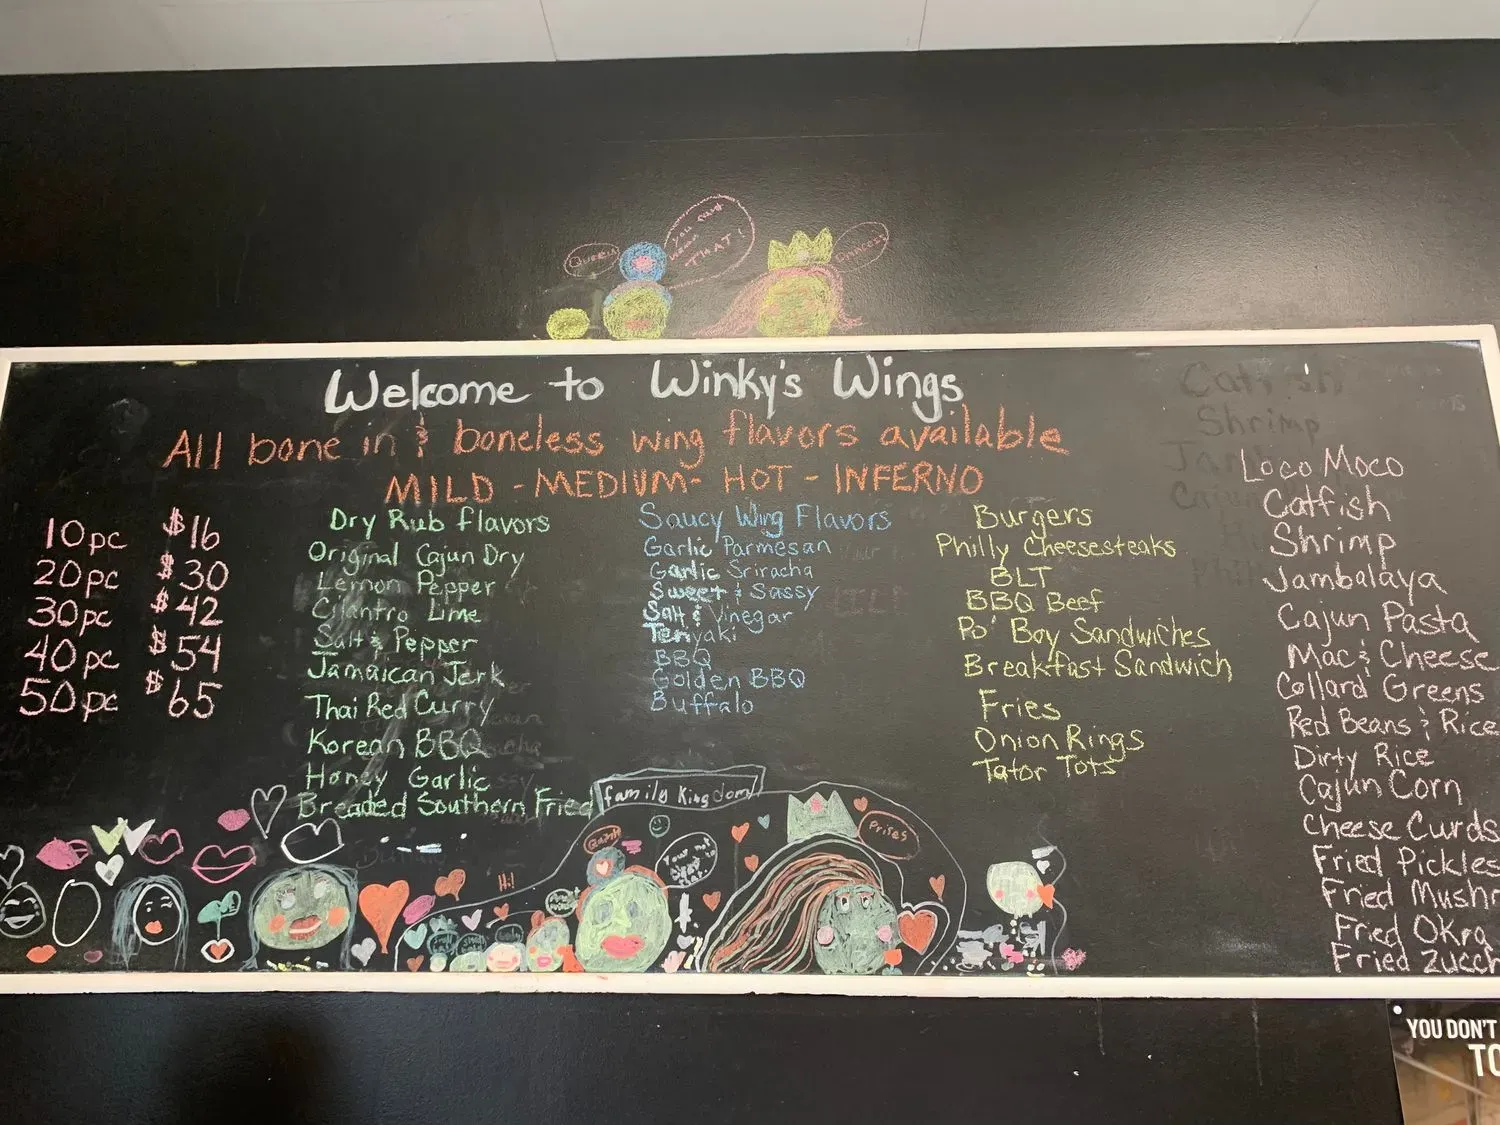 Queen
THAT!
princess
Welcome to Winky's Wings
All bone in & boneless wing flavors available
MILD - MEDIUM - HOT - INFERNO
10pc $16
20pc $30
30pc $42
40pc $54
50pc $65
Dry Rub flavors
Original Cajun Dry
Lemon Pepper
Cilantro Lime
Salt & Pepper
Jamaican Jerk
Thai Red Curry
Korean BBQ
Honey Garlic
Breaded Southern Fried
Saucy Wing Flavors
Garlic Parmesan
Garlic Sriracha
Sweet & Sassy
Salt & Vinegar
Teriyaki
BBQ
Golden BBQ
Buffalo
Burgers
Philly Cheesesteaks
BLT
BBQ Beef
Po' Boy Sandwiches
Breakfast Sandwich
Fries
Onion Rings
Tator Tots
Catfish
Shrimp
Loco Moco
Catfish
Shrimp
Jambalaya
Cajun Pasta
Mac & Cheese
Collard Greens
Red Beans & Rice
Dirty Rice
Cajun Corn
Cheese Curds
Fried Pickles
Fried Mushr
Fried Okra
Fried Zucch
family Kingdom
Hi!
YOU DON'T
TO